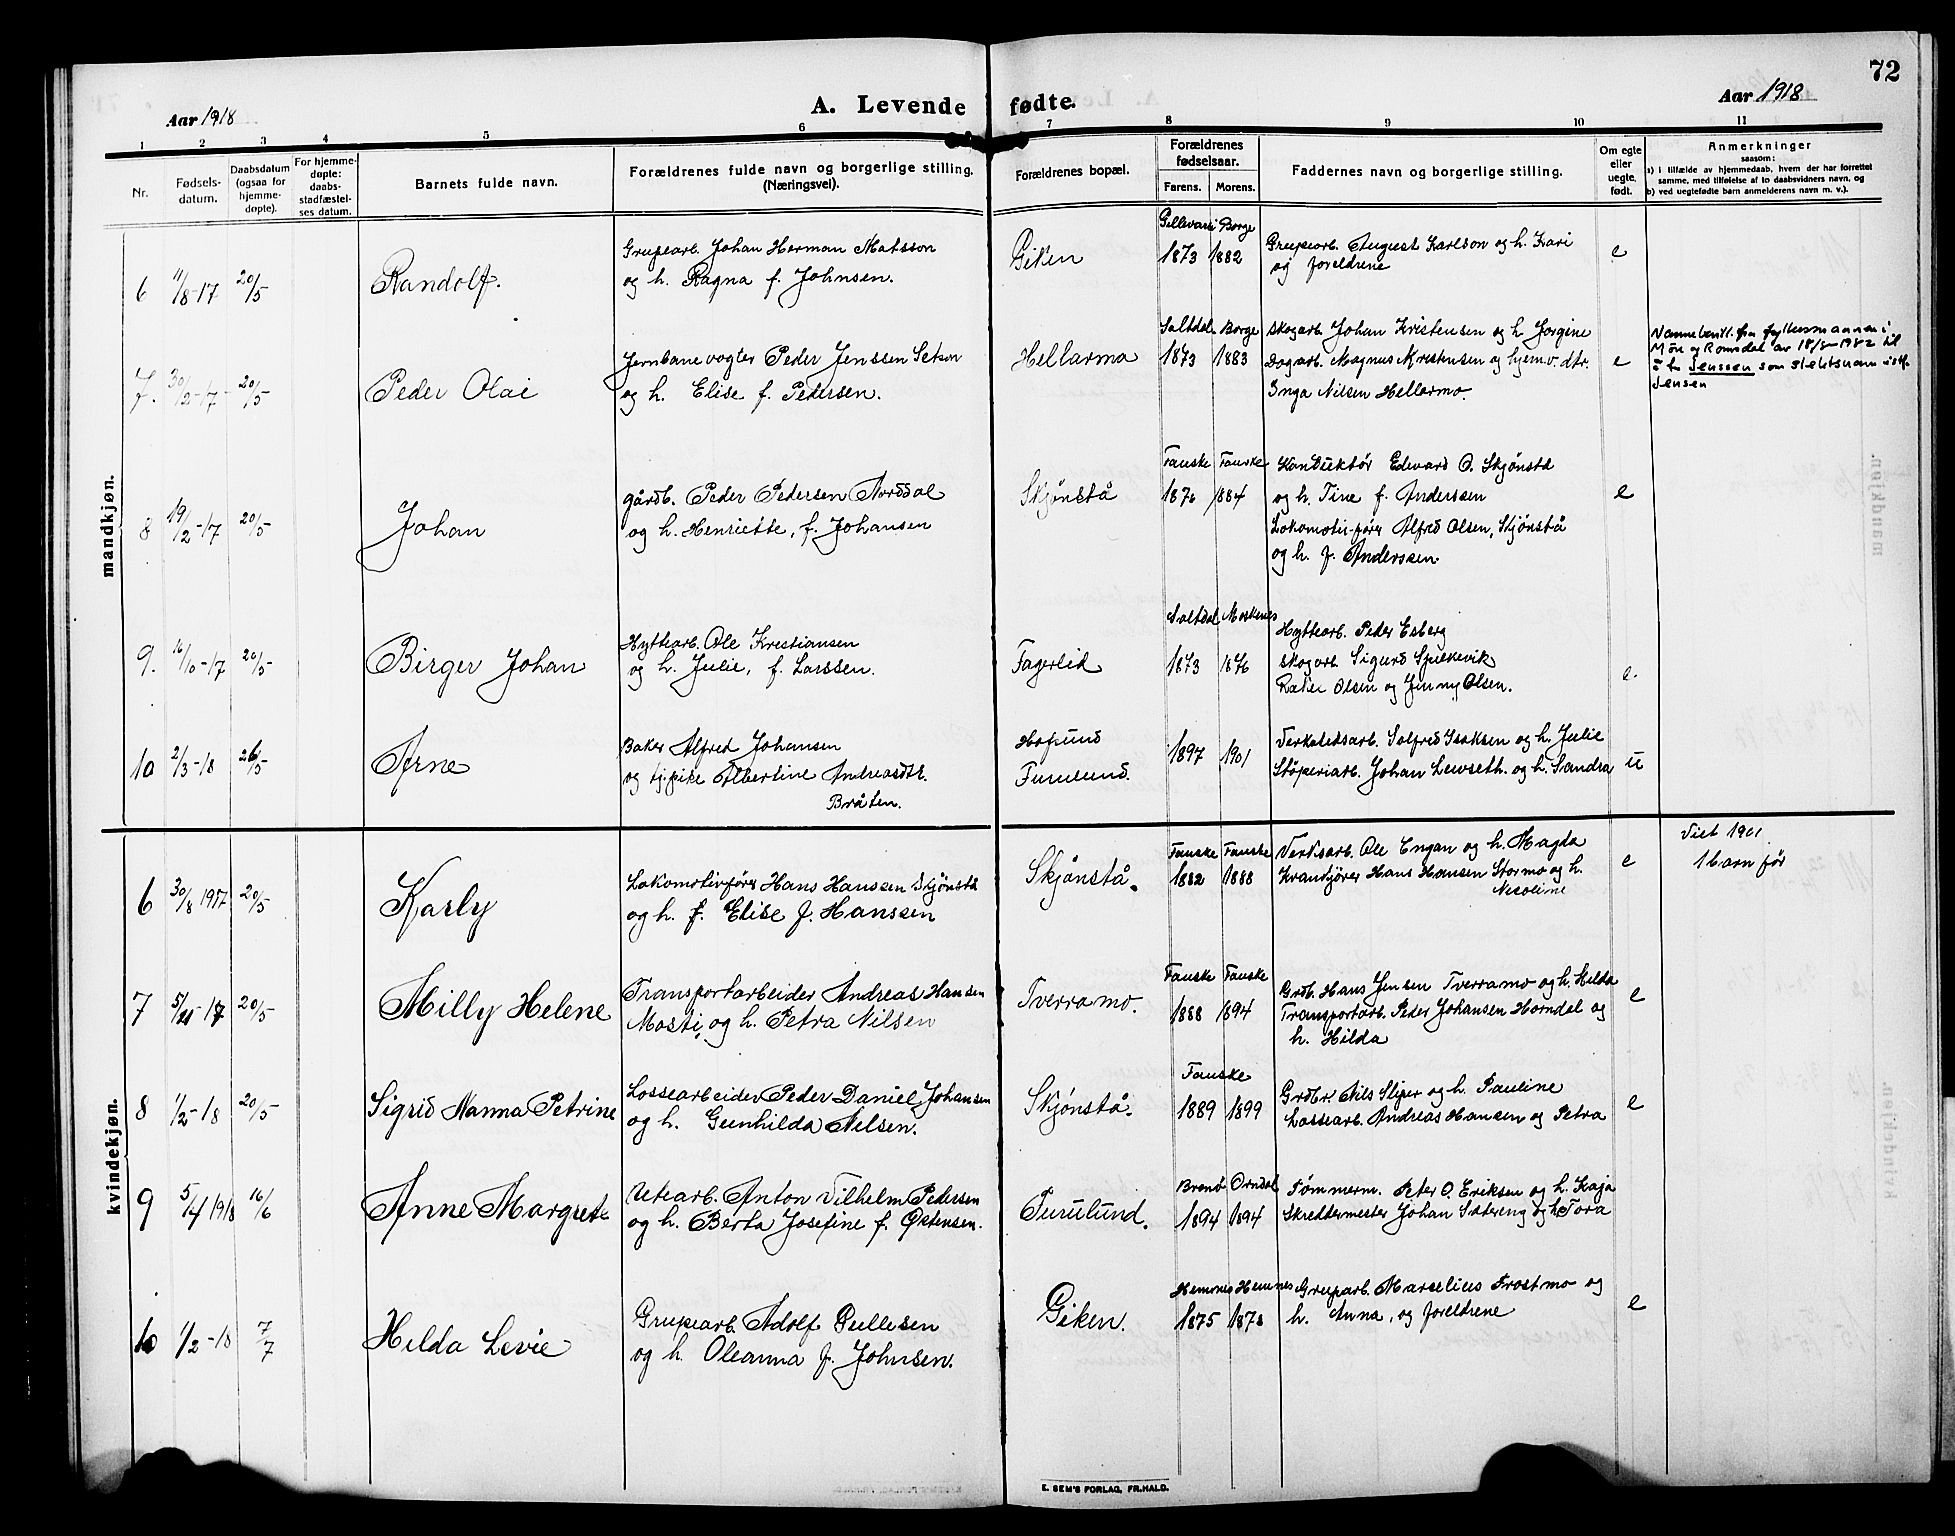 72
Aar 1918
A. Levende fødte.
Aar 1918
1 2 3 4 5 6 7 8 9 10 11
Nr.
Fødsels-
datum.
Daabsdatum
(ogsaa for
hjemme-
døpte).
For hjemme-
døpte:
daabs-
stadfæstel-
ses datum.
Barnets fulde navn.
Forældrenes fulde navn og borgerlige stilling.
(Næringsvei).
Forældrenes bopæl.
Forældrenes
fødselsaar.
Farens. Morens.
Faddernes navn og borgerlige stilling.
Om egte
eller
uegte
født.
Anmerkninger
saasom:
a) i tilfælde av hjemmedaab, hvem der har forrettet
samme, med tilføielse af to daabsvidners navn, og
b) ved uegtefødte børn anmelderens navn m. v.).
mandkjøn.
6 11/8-17 20/5 Randolf.
Grubearb. Johan Herman Matsson
og h. Ragna f. Johnsen.
Giken
Gellevari Borge
1873 1882
Grubearb. August Karlson og h. Kari
og foreldrene
e
7. 30/12-17 20/5 Peder Olai
Jernbanevogter Peder Jenssen Setsaa
og h. Elise f. Pedersen.
Hellarmo
Saltdal Borge
1873 1883
Skogarb. Johan Kristensen og h. Jorgine
Dagarb. Magnus Kristensen og hjem.v. dtr.
Inga Nilsen Hellarmo.
e
Navnebevill. fra fylkesmannen i
Møre og Romsdal av 18/5-1982 til
å ta Jenssen som slektsnavn istf.
Jensen
8 19/12-17 20/5 Johan
Gårdb. Peder Pedersen Norddal
og h. Henriette, f. Johansen
Skjønstå
Fauske Fauske
1876 1884
Konduktør Edevard O. Skjønstå
og h. Tine f. Anderssen
Lokomotivfører Alfred Olsen, Skjønstå
og h. f. Anderssen.
e
9. 16/10-17 20/5 Birger Johan
Hyttearb. Ole Kristiansen
og h. Julie, f. Larssen.
Fagerlid
Saltdal Moskenes
1873 1876
Hyttearb. Peder Esberg
Skogarb. Sigurd Spilkevik
Rakel Olsen og Jenny Olsen.
e.
10 2/3-18 26/5 Arne
Baker Alfred Johansen
og tj.pike Albertine Andreasdtr.
Bråten.
Furulund.
1897 1901
Verkstedsarb. Solfred Isaksen og h. Julie
Støperiarb. Johan Lewseth. og h. Sandra
u
kvindekjøn.
6 30/8 1917 20/5 Karly
Lokomotivfører Hans Hanssen Skjønstå
og h. f. Elise f. Hanssen
Skjønstå.
Fauske Fauske
1882 1888
Verksarb. Ole Engan og h. Magda
Krankjører Hans Hansen Stormo og h.
Nicoline
e
Viet 1901
1 barn før
7 5/11-17 20/5 Milly Helene
Transportarbeider Andreas Hansen
Mosti, og h. Petra Nilsen
Tverramo.
Fauske Fauske
1888 1894
Grdb. Hans Jensen Tverramo og h. Hilda
Transportarb. Peder Johansen Horndal og
h. Hilda
e
8 1/2-18 20/5 Sigrid Nanna Petrine
Lossearbeider Peder Daniel Johansen
og h. Gunhilda Nilsen.
Skjønstå.
Fauske
1889 1899
Grdbr. Nils Sliper og h. Pauline
Lossearb. Andreas Hansen og Petra
e
9 5/4 1918 16/6 Anne Margrete
Utearb. Anton Vilhelm Pedersen
og h. Berta Josefine f. Østensen.
Furulund.
Brenø
1894 1894
Tømmerm. Peter O. Eriksen og h. Kaja
Skreddermester Johan Sætereng og h. Tora
10 1/2-18 7/7 Hilda Levie
Grubearb. Adolf Pellesen
og h. Oleanna f. Johnsen.
Giken.
Hemnes Hemnes
1875 1878
Grubarb. Marselius Frostmo og
h. Anna, og foreldrene
e
E. SEM'S FORLAG, FR.HALD.